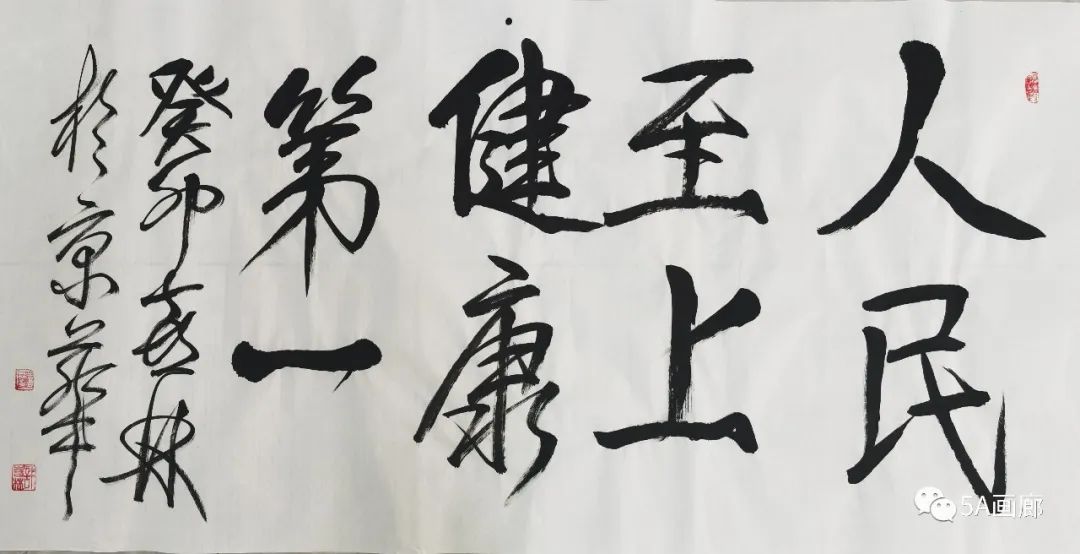 人民
至上
健康
第一
癸卯喜林
於京華
5A画廊